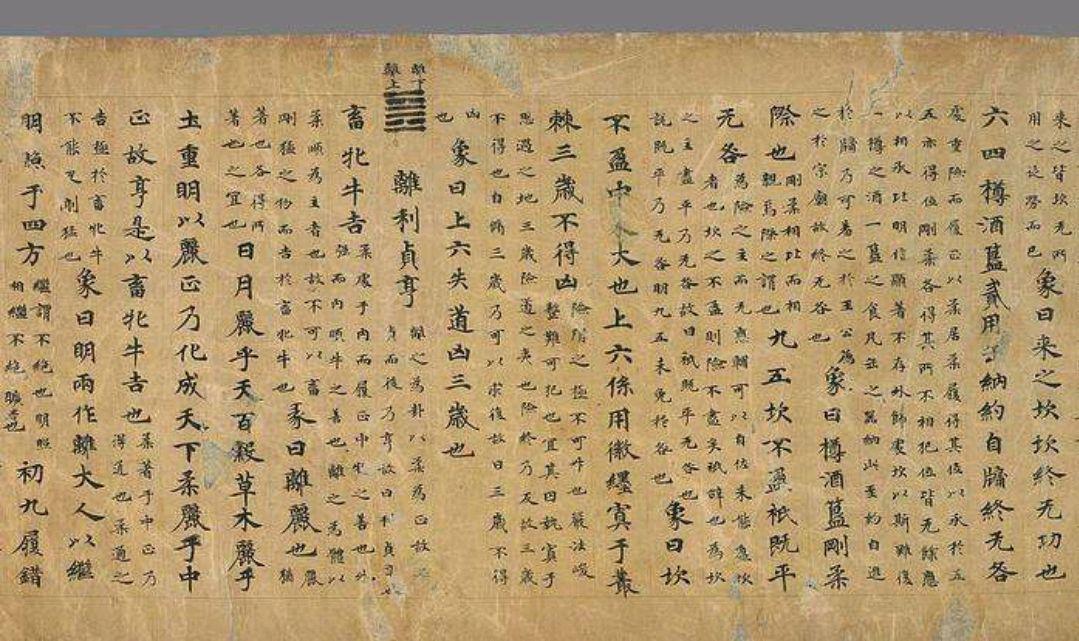 来之皆坎无所
用之徒勞而已
象曰来之坎坎終无功也
六四樽酒簋貳用缶納約自牖終无咎
處重險而履正以柔居柔履得其位以承於五
五亦得位剛柔各得其所不相犯位皆无餘應
以相承比明信顯著不存外飾處坎以斯雖復
一樽之酒一簋之食凡缶之器納此至約自進
於牖乃可羞之於王公薦
之於宗廟故終无咎也
象曰樽酒簋剛柔
際也
剛柔相比而相
親焉際之謂也
九五坎不盈祇既平
无咎
為險之主而无應輔可以自佐未能盈坎
者也坎之不盈則險不盡矣祇辝也為坎
之主盡平乃无咎故曰祇既平无咎也
説既平乃无咎明九五未免於咎也
象曰坎
不盈中未大也上六係用徽纆寘于叢
棘三歳不得凶
險陗之極不可升也嚴法峻
整難可犯也宜其囚執寘于
思過之地三歲險道之夷也險終乃反故三歲
不得也自脩三歲乃可以求復故曰三歲不得
凶
也
象曰上六失道凶三歳也
離下
離上
離利貞亨
離之為卦以柔為正故必
貞而後乃亨故曰利貞亨也
畜牝牛吉
柔處于内而履正中牝之善也外
强而内順牛之善也離之為體以
柔順為主者也故不可以畜
剛猛之物而吉於畜牝牛也
彖曰離麗也
麗
猶
著也各得所
著也之宜也
日月麗乎天百穀草木麗乎
土重明以麗正乃化成天下柔麗乎中
正故亨是以畜牝牛吉也
柔著于中正乃
得通也柔通之
吉極於畜牝牛
不能及剛猛也
象曰明兩作離大人以繼
明照于四方
繼謂不絶也明照
相繼不絶曠也
初九履錯